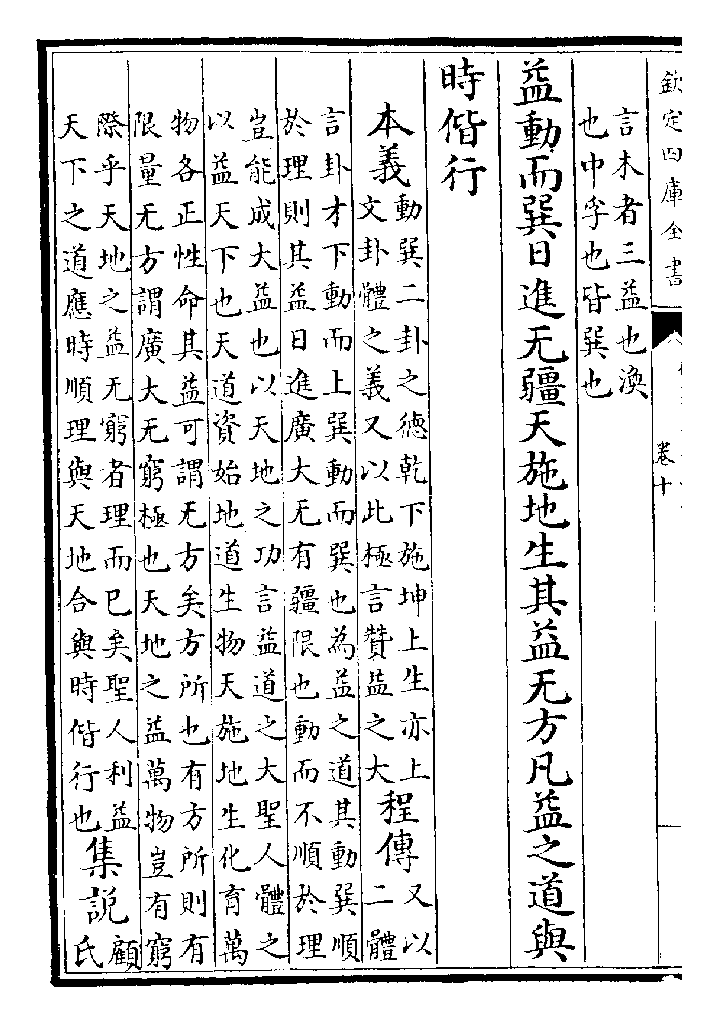 欽定四庫全書
卷十
言木者三益也渙
也中孚也皆巽也
益動而巽日進无疆天施地生其益无方凡益之道與
時偕行
本義
動巽二卦之德乾下施坤上生亦上
文卦體之義又以此極言贊益之大
程傳
又以
二體
言卦才下動而上巽動而巽也為益之道其動巽順
於理則其益日進廣大无有疆限也動而不順於理
豈能成大益也以天地之功言益道之大聖人體之
以益天下也天道資始地道生物天施地生化育萬
物各正性命其益可謂无方矣方所也有方所則有
限量无方謂廣大无窮極也天地之益萬物豈有窮
際乎天地之益无窮者理而已矣聖人利益
天下之道應時順理與天地合與時偕行也
集説
顧
氏